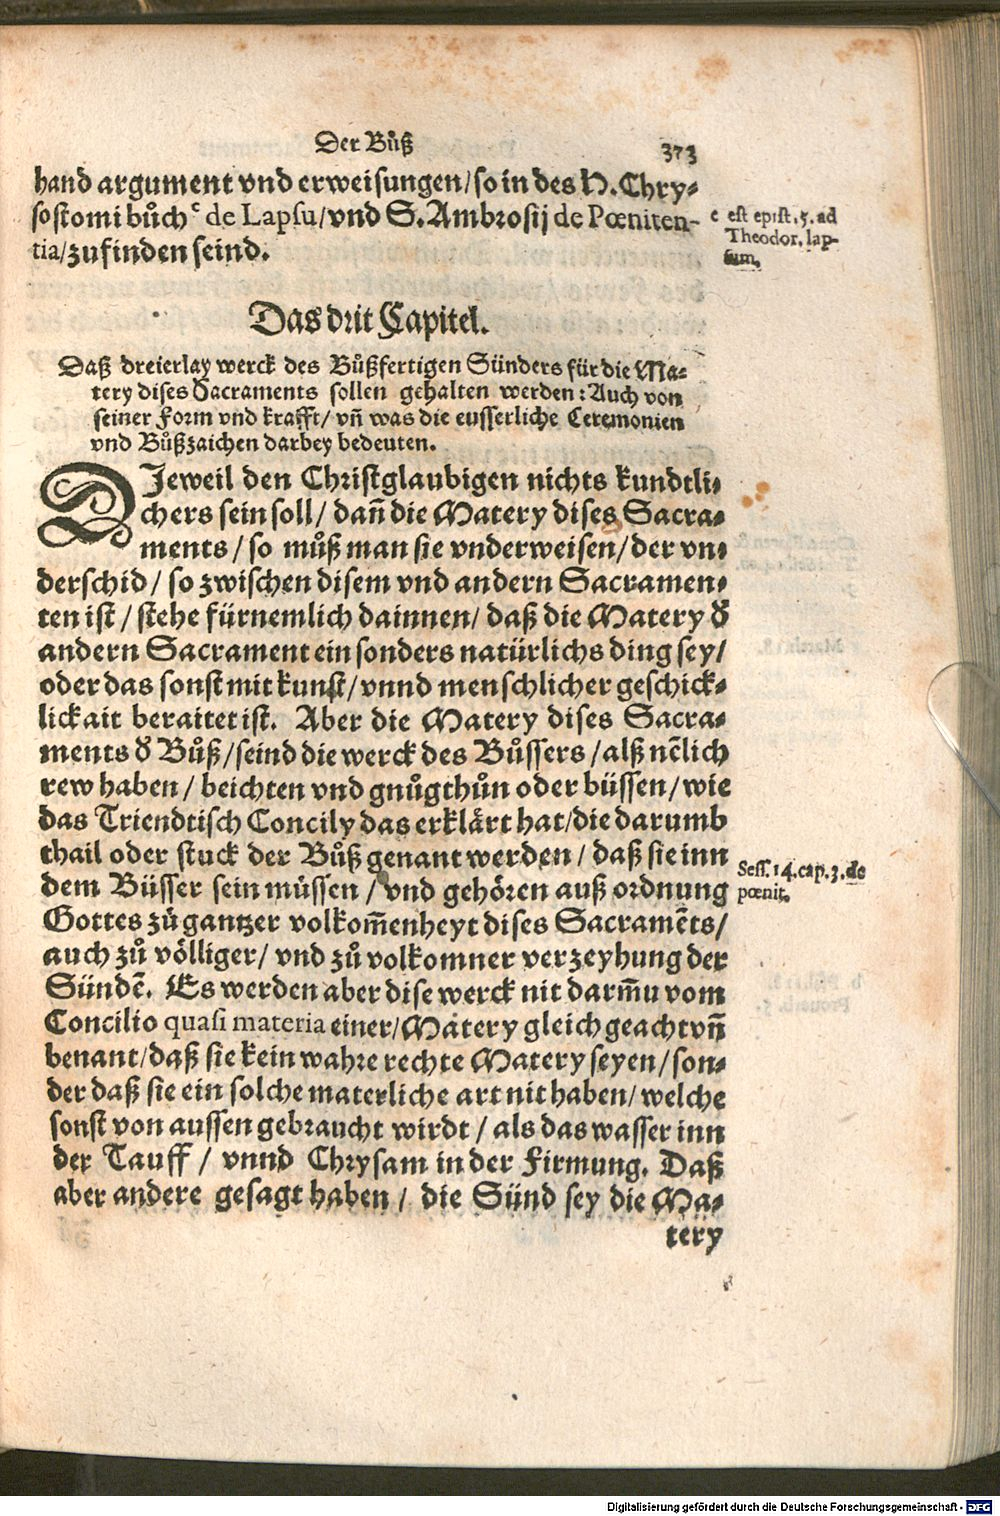 Der Bůß
373
hand argument vnd erweisungen/so in des H. Chry-
sostomi bůch c de Lapsu/vnd S. Ambrosij de Pœniten-
tia/zufinden seind.
c est epist. 5. ad
Theodor. lap-
sum.
Das drit Capitel.
Daß dreierlay werck des Bůßfertigen Sünders für die Ma-
tery dises Sacraments sollen gehalten werden: Auch von
seiner Form vnd krafft/ vñ was die eusserliche Ceremonien
vnd Bůßzaichen darbey bedeuten.
DIeweil den Christglaubigen nichts kundtli-
chers sein soll/ dañ die Matery dises Sacra-
ments/ so můß man sie vnderweisen/ der vn-
derschid/ so zwischen disem vnd andern Sacramen-
ten ist/ stehe fürnemlich dainnen/ daß die Matery d̕
andern Sacrament ein sonders natürlichs ding sey/
oder das sonst mit kunst/ vnnd menschlicher geschick-
lickait beraitet ist. Aber die Matery dises Sacra-
ments d̕ Bůß/seind die werck des Bůssers/alß nẽlich
rew haben/ beichten vnd gnůgthůn oder büssen/wie
das Triendtisch Concily das erklärt hat/die darumb
thail oder stuck der Bůß genant werden/ daß sie inn
dem Büsser sein müssen/ vnd gehören auß ordnung
Gottes zů gantzer volkom̃enheyt dises Sacramẽts/
auch zů völliger/ vnd zů volkomner verzeyhung der
Sündẽ. Es werden aber dise werck nit darm̃u vom
Concilio quasi materia einer/Matery gleich geacht vñ
benant/daß sie kein wahre rechte Matery seyen/son-
der daß sie ein solche materliche art nit haben/ welche
sonst von aussen gebraucht wirdt/ als das wasser inn
der Tauff/ vnnd Chrysam in der Firmung. Daß
aber andere gesagt haben/ die Sünd sey die Ma-
tery
Sess. 14. cap. 3. de
pœnit.
Digitalisierung gefördert durch die Deutsche Forschungsgemeinschaft - DFG